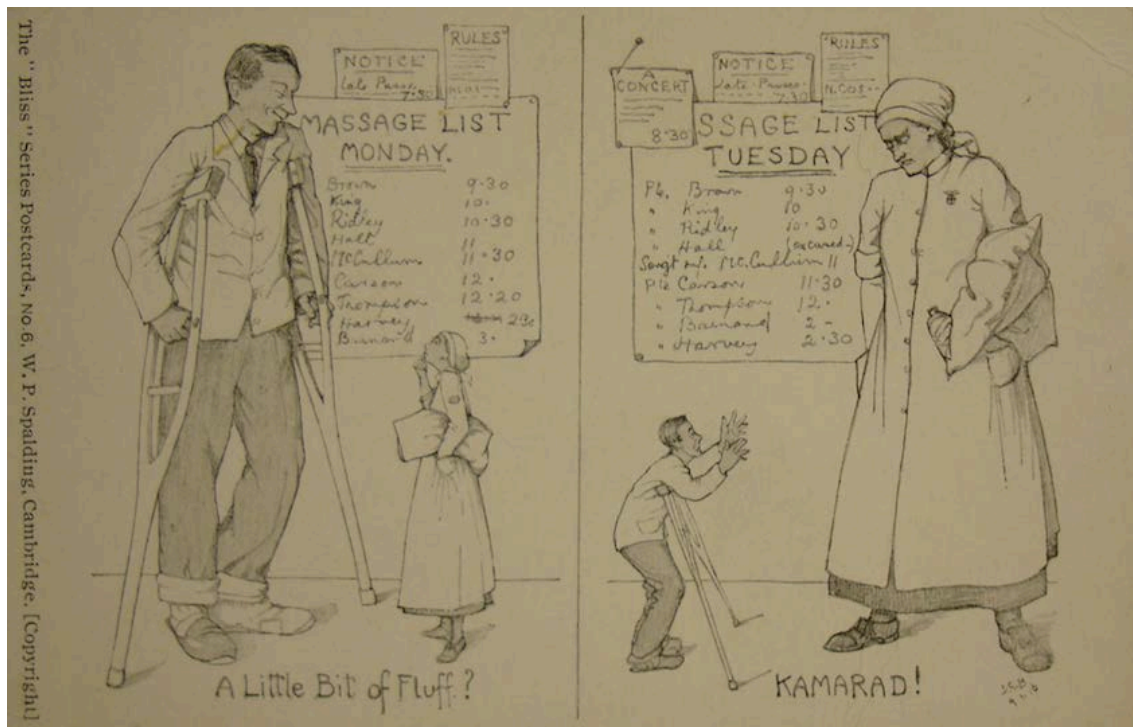 The "Bliss" Series Postcards, No 6, W. P. Spalding, Cambridge. [Copyright]
NOTICE
Late Passes
7.30
"RULES"
N.COS
MASSAGE LIST
MONDAY.
Brown 9.30
King 10.
Ridley 10.30
Hall 11
McCullum 11.30
Carson 12.
Thompson 12.20
Harvey 2 30
Barnard 3.
A Little Bit of Fluff.?
A
CONCERT
8.30
NOTICE
Late Passes
7.30
"RULES"
N.COS
SSAGE LIST
TUESDAY
Pte. Brown 9.30
" King 10
" Ridley 10.30
" Hall (excused)
Sergt mj. McCullum 11
Pte Carson 11.30
" Thompson 12.
" Barnard 2 -
" Harvey 2.30
KAMARAD!